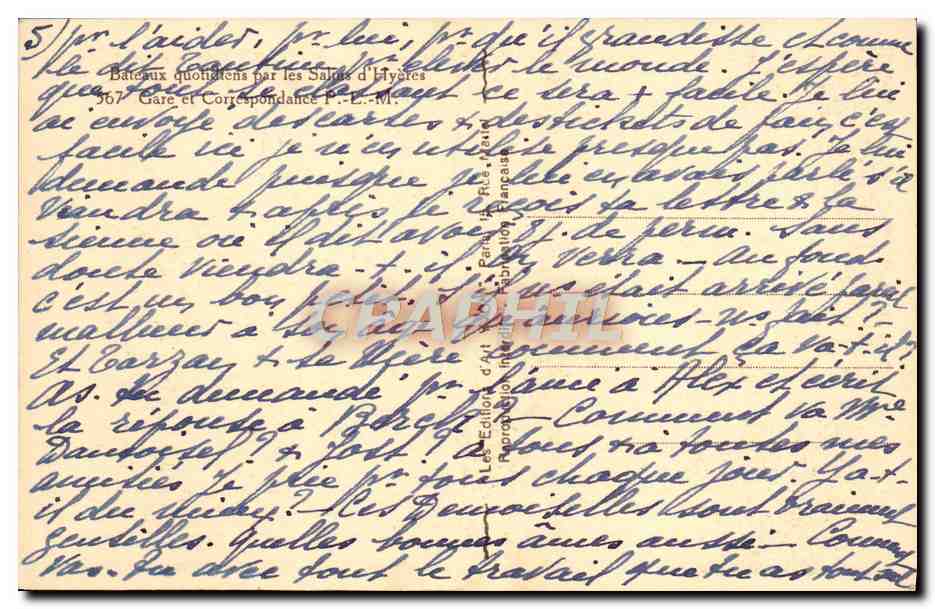 5/ pr l'aider, pr lui, pr qu'il grandisse et comme
le dit le monde. J'espère
Bateaux quotidiens par les Salins d'Hyères
que ce sera + facile. Je lui
367 Gare et Correspondance P.-L.-M.
ai envoyé des cartes + des tickets de pain, c'est
facile ici je n'en utilise presque pas. Je lui
demande puisque je lui en avais parlé s'il
viendra + après, je reçois ta lettre + la
sienne où il dit avoir 3 j. de perm. Sans
doute viendra-t-il, on verra - au fond
c'est un bon petit. S'il ns était arrivé pareil
malheur à son âge qu'aurions-ns fait ?
Et Tarzan + sa Mère comment ça va-t-il ?
As-tu demandé pr à Alex et écrit
la réponse à - Comment va Mme
? + Jost ? à tous + à toutes mes
amitiés Je prie pr tous chaque jour. Y a-t-
il du mieux ? - Ces Demoiselles sont vraiment
gentilles. Quelles bonnes âmes aussi - Comment
vas-tu avec tout le travail que tu as
Les Editions d'Art Paris, Rue
Reproduction Interdite Fabrication Française
CPAPHIL